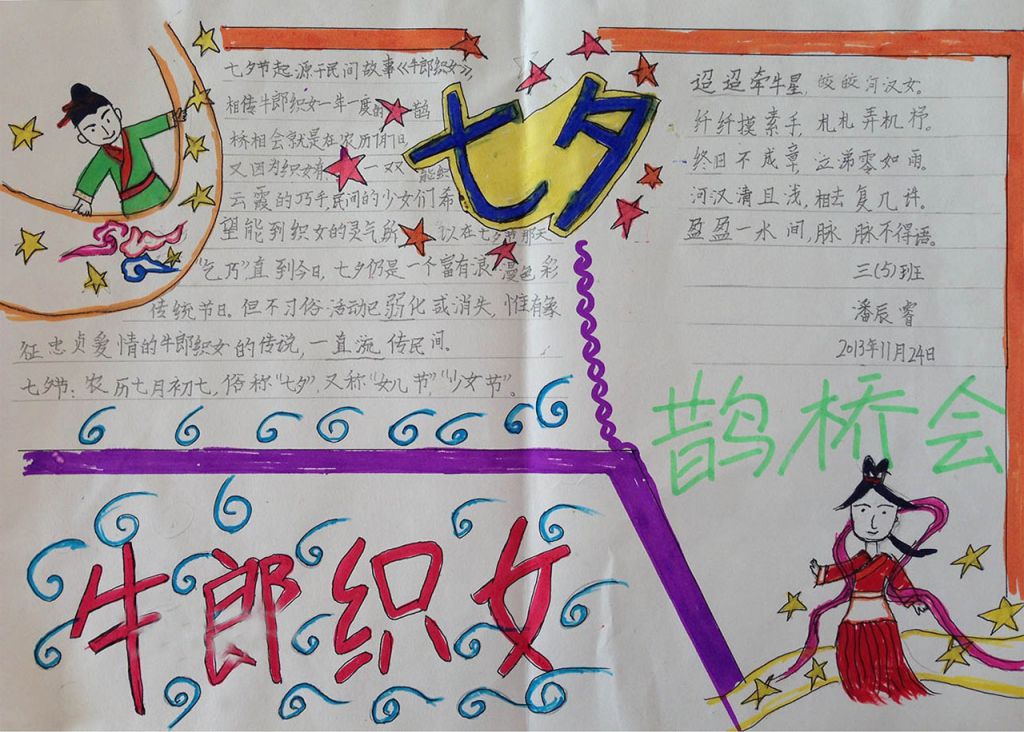 七夕节起源于民间故事《牛郎织女》,
相传牛郎织女一年一度的 鹊
桥相会就是在农历7月7日,
又因为织女有 一双 能织
云霞的巧手,民间的少女们希
望能到织女的灵气所 以在七夕节那天
“乞巧”直到今日,七夕仍是一个富有浪漫色彩
传统节日。但不习俗活动已弱化或消失,惟有象
征忠贞爱情的牛郎织女的传说,一直流传民间。
七夕节:农历七月初七,俗称“七夕”,又称“女儿节”,“少女节”。
七夕
迢迢牵牛星,皎皎河汉女。
纤纤擢素手,札札弄机杼。
终日不成章,泣涕零如雨。
河汉清且浅,相去复几许。
盈盈一水间,脉脉不得语。
三(5)班
潘辰睿
2013年11月24日
鹊桥会
牛郎织女